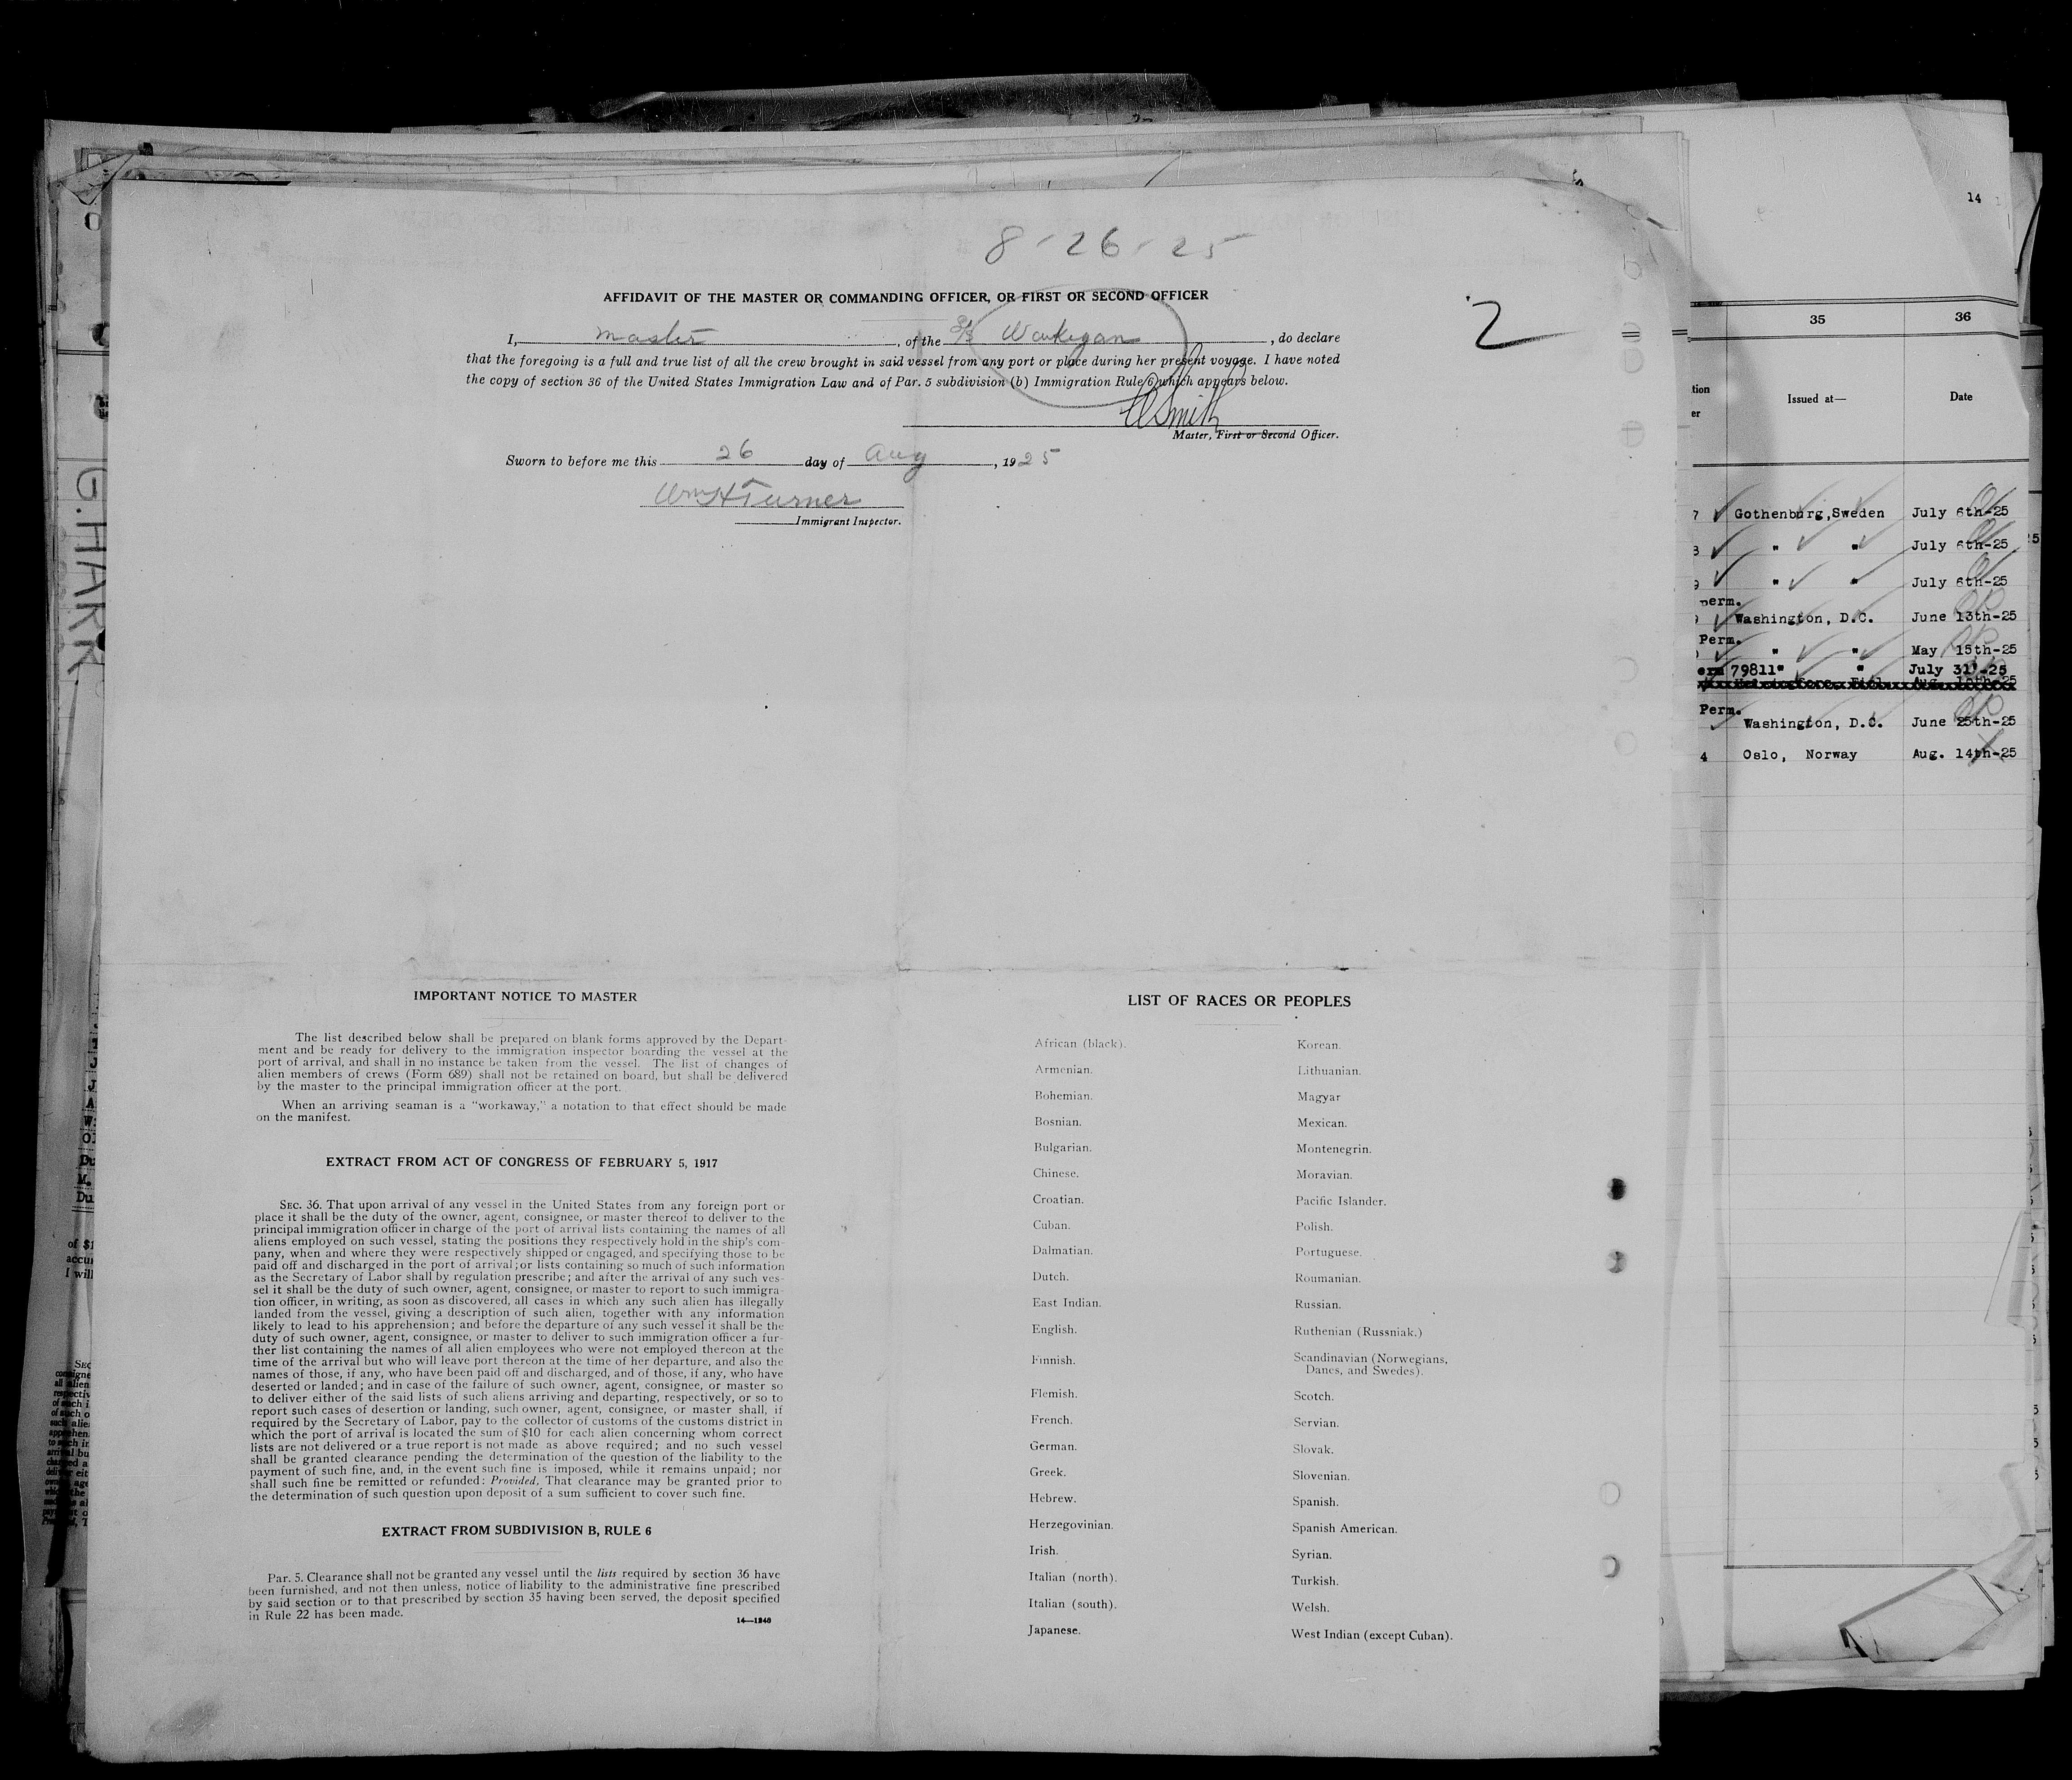 8-26-25
AFFIDAVIT OF THE MASTER OR COMMANDING OFFICER, OR FIRST OR SECOND OFFICER
2
I, master, of the S/S Waukegan, do declare
that the foregoing is a full and true list of all the crew brought in said vessel from any port or place during her present voyage. I have noted
the copy of section 36 of the United States Immigration Law and of Par. 5 subdivision (b) Immigration Rule 6, which appears below.
Smith
Master, First or Second Officer.
Sworn to before me this 26 day of Aug, 1925
Wm H Turner
Immigrant Inspector.
IMPORTANT NOTICE TO MASTER
The list described below shall be prepared on blank forms approved by the Depart-
ment and be ready for delivery to the immigration inspector boarding the vessel at the
port of arrival, and shall in no instance be taken from the vessel. The list of changes of
alien members of crews (Form 689) shall not be retained on board, but shall be delivered
by the master to the principal immigration officer at the port.
When an arriving seaman is a "workaway," a notation to that effect should be made
on the manifest.
EXTRACT FROM ACT OF CONGRESS OF FEBRUARY 5, 1917
SEC. 36. That upon arrival of any vessel in the United States from any foreign port or
place it shall be the duty of the owner, agent, consignee, or master thereof to deliver to the
principal immigration officer in charge of the port of arrival lists containing the names of all
aliens employed on such vessel, stating the positions they respectively hold in the ship's com-
pany, when and where they were respectively shipped or engaged, and specifying those to be
paid off and discharged in the port of arrival; or lists containing so much of such information
as the Secretary of Labor shall by regulation prescribe; and after the arrival of any such ves-
sel it shall be the duty of such owner, agent, consignee, or master to report to such immigra-
tion officer, in writing, as soon as discovered, all cases in which any such alien has illegally
landed from the vessel, giving a description of such alien, together with any information
likely to lead to his apprehension; and before the departure of any such vessel it shall be the
duty of such owner, agent, consignee, or master to deliver to such immigration officer a fur-
ther list containing the names of all alien employees who were not employed thereon at the
time of the arrival but who will leave port thereon at the time of her departure, and also the
names of those, if any, who have been paid off and discharged, and of those, if any, who have
deserted or landed; and in case of the failure of such owner, agent, consignee, or master so
to deliver either of the said lists of such aliens arriving and departing, respectively, or so to
report such cases of desertion or landing, such owner, agent, consignee, or master shall, if
required by the Secretary of Labor, pay to the collector of customs of the customs district in
which the port of arrival is located the sum of $10 for each alien concerning whom correct
lists are not delivered or a true report is not made as above required; and no such vessel
shall be granted clearance pending the determination of the question of the liability to the
payment of such fine, and, in the event such fine is imposed, while it remains unpaid; nor
shall such fine be remitted or refunded: Provided, That clearance may be granted prior to
the determination of such question upon deposit of a sum sufficient to cover such fine.
EXTRACT FROM SUBDIVISION B, RULE 6
Par. 5. Clearance shall not be granted any vessel until the lists required by section 36 have
been furnished, and not then unless, notice of liability to the administrative fine prescribed
by said section or to that prescribed by section 35 having been served, the deposit specified
in Rule 22 has been made.
14—1240
LIST OF RACES OR PEOPLES
African (black).
Armenian.
Bohemian.
Bosnian.
Bulgarian.
Chinese.
Croatian.
Cuban.
Dalmatian.
Dutch.
East Indian.
English.
Finnish.
Flemish.
French.
German.
Greek.
Hebrew.
Herzegovinian.
Irish.
Italian (north).
Italian (south).
Japanese.
Korean.
Lithuanian.
Magyar
Mexican.
Montenegrin.
Moravian.
Pacific Islander.
Polish.
Portuguese.
Roumanian.
Russian.
Ruthenian (Russniak.)
Scandinavian (Norwegians,
Danes, and Swedes).
Scotch.
Servian.
Slovak.
Slovenian.
Spanish.
Spanish American.
Syrian.
Turkish.
Welsh.
West Indian (except Cuban).
14
35 36
Issued at— Date
7 Gothenburg,Sweden July 6th-25
8 " " July 6th-25
9 " " July 6th-25
perm.
Washington, D.C. June 13th-25
Perm.
" " May 15th-25
79811" " July 31"-25
Perm.
Washington, D.C. June 25th-25
4 Oslo, Norway Aug. 14th-25
G.HARK